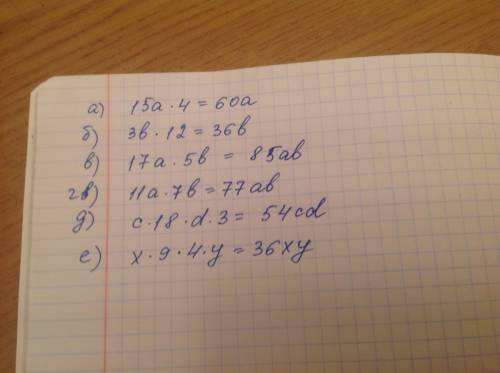 а) 15a · 4 = 60a
б) 3b · 12 = 36b
в) 17a · 5b = 85ab
гв) 11a · 7b = 77ab
д) c · 18 · d · 3 = 54cd
е) x · 9 · 4 · y = 36xy